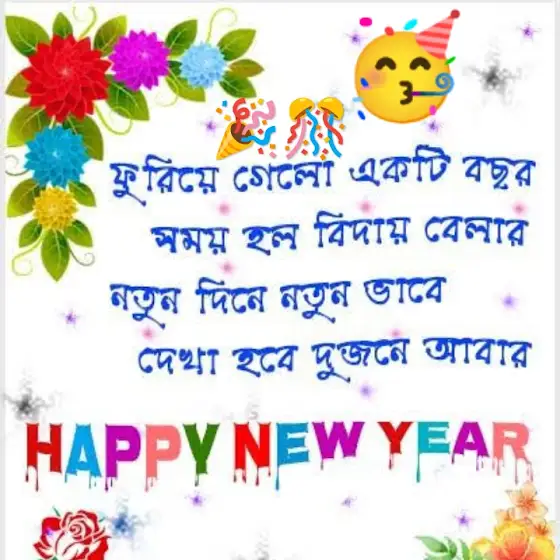 ফুরিয়ে গেলো একটি বছর
সময় হল বিদায় বেলার
নতুন দিনে নতুন ভাবে
দেখা হবে দুজনে আবার
HAPPY NEW YEAR